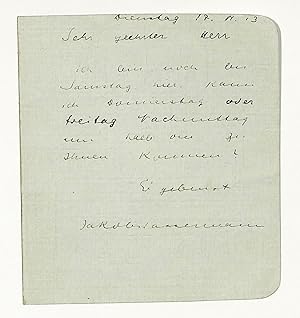 Dienstag 18. 11. 13
Sehr geehrter Herr
ich bin noch bis
Samstag hier. Kann
ich Donnerstag oder
Freitag Nachmittag
um halb vier zu
Ihnen kommen?
Ergebenst
JakobWassermann